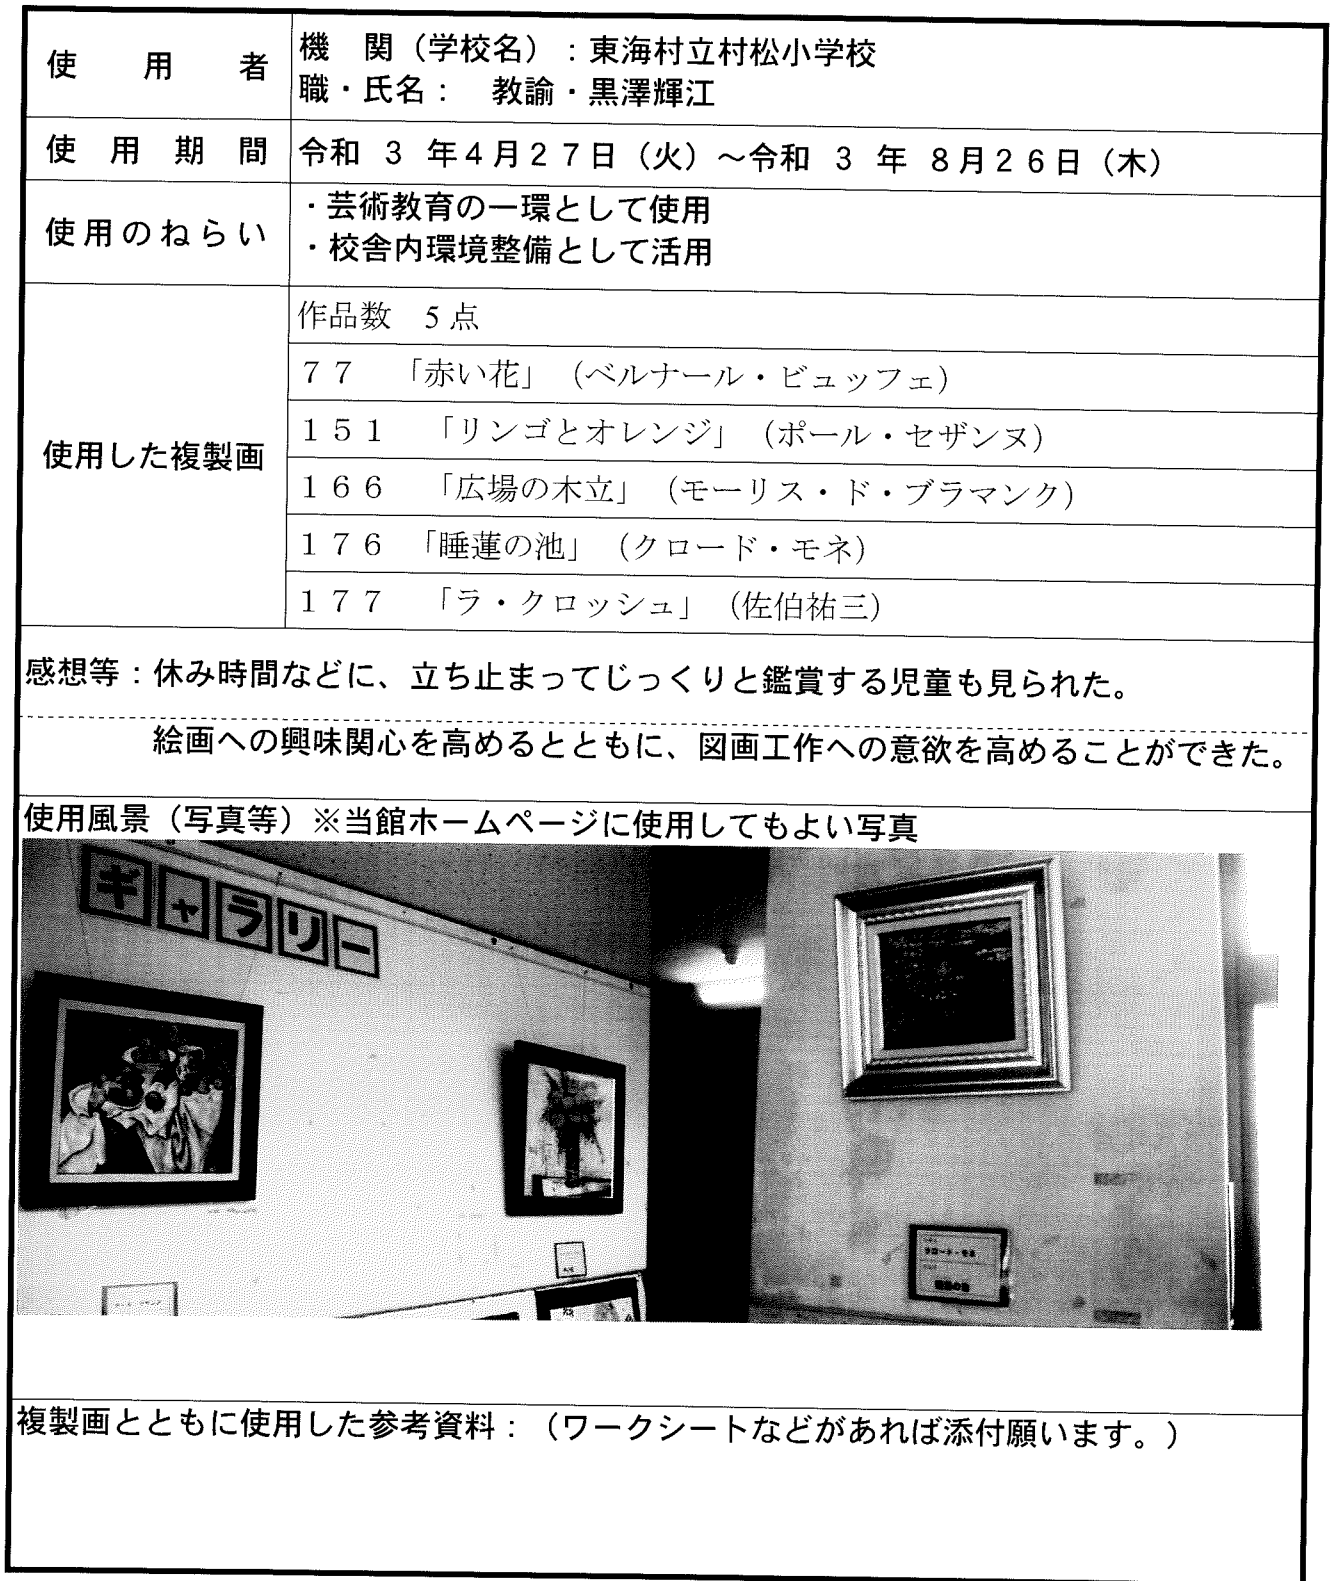 使用者
機 関（学校名）：東海村立村松小学校
職・氏名： 教諭・黒澤輝江
使用期間
令和 3 年4月27日（火）～令和 3 年 8月26日（木）
使用のねらい
・芸術教育の一環として使用
・校舎内環境整備として活用
使用した複製画
作品数 5点
77 「赤い花」（ベルナール・ビュッフェ）
151 「リンゴとオレンジ」（ポール・セザンヌ）
166 「広場の木立」（モーリス・ド・ブラマンク）
176 「睡蓮の池」（クロード・モネ）
177 「ラ・クロッシュ」（佐伯祐三）
感想等：休み時間などに、立ち止まってじっくりと鑑賞する児童も見られた。
絵画への興味関心を高めるとともに、図画工作への意欲を高めることができた。
使用風景（写真等）※当館ホームページに使用してもよい写真
ギャラリー
クロード・モネ
睡蓮の池
複製画とともに使用した参考資料：（ワークシートなどがあれば添付願います。）